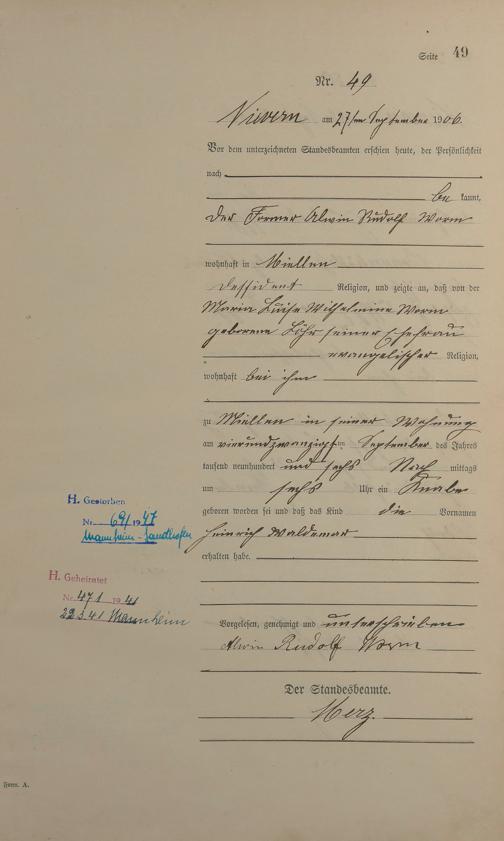 Seite 49
Nr. 49
Nievern am 27ten September 1906.
Vor dem unterzeichneten Standesbeamten erschien heute, der Persönlichkeit
nach
be kannt,
der Former Alwin Rudolf Worm
wohnhaft in Miellen
Dissident Religion, und zeigte an, daß von der
Maria Luise Wilhelmine Worm
geborene Löhr seiner Ehefrau
evangelischer Religion,
wohnhaft bei ihm
zu Miellen in seiner Wohnung
am vierundzwanzigsten September des Jahres
tausend neunhundert und sechs Nach mittags
um sechs Uhr ein Knabe
geboren worden sei und daß das Kind die Vornamen
Heinrich Waldemar
erhalten habe.
H. Gestorben
Nr. 69/1947
Mannheim-Sandhofen
H. Geheiratet
Nr. 471 1941
22.3.41 Mannheim
Vorgelesen, genehmigt und unterschrieben
Alwin Rudolf Worm
Der Standesbeamte.
Merz.
Form. A.